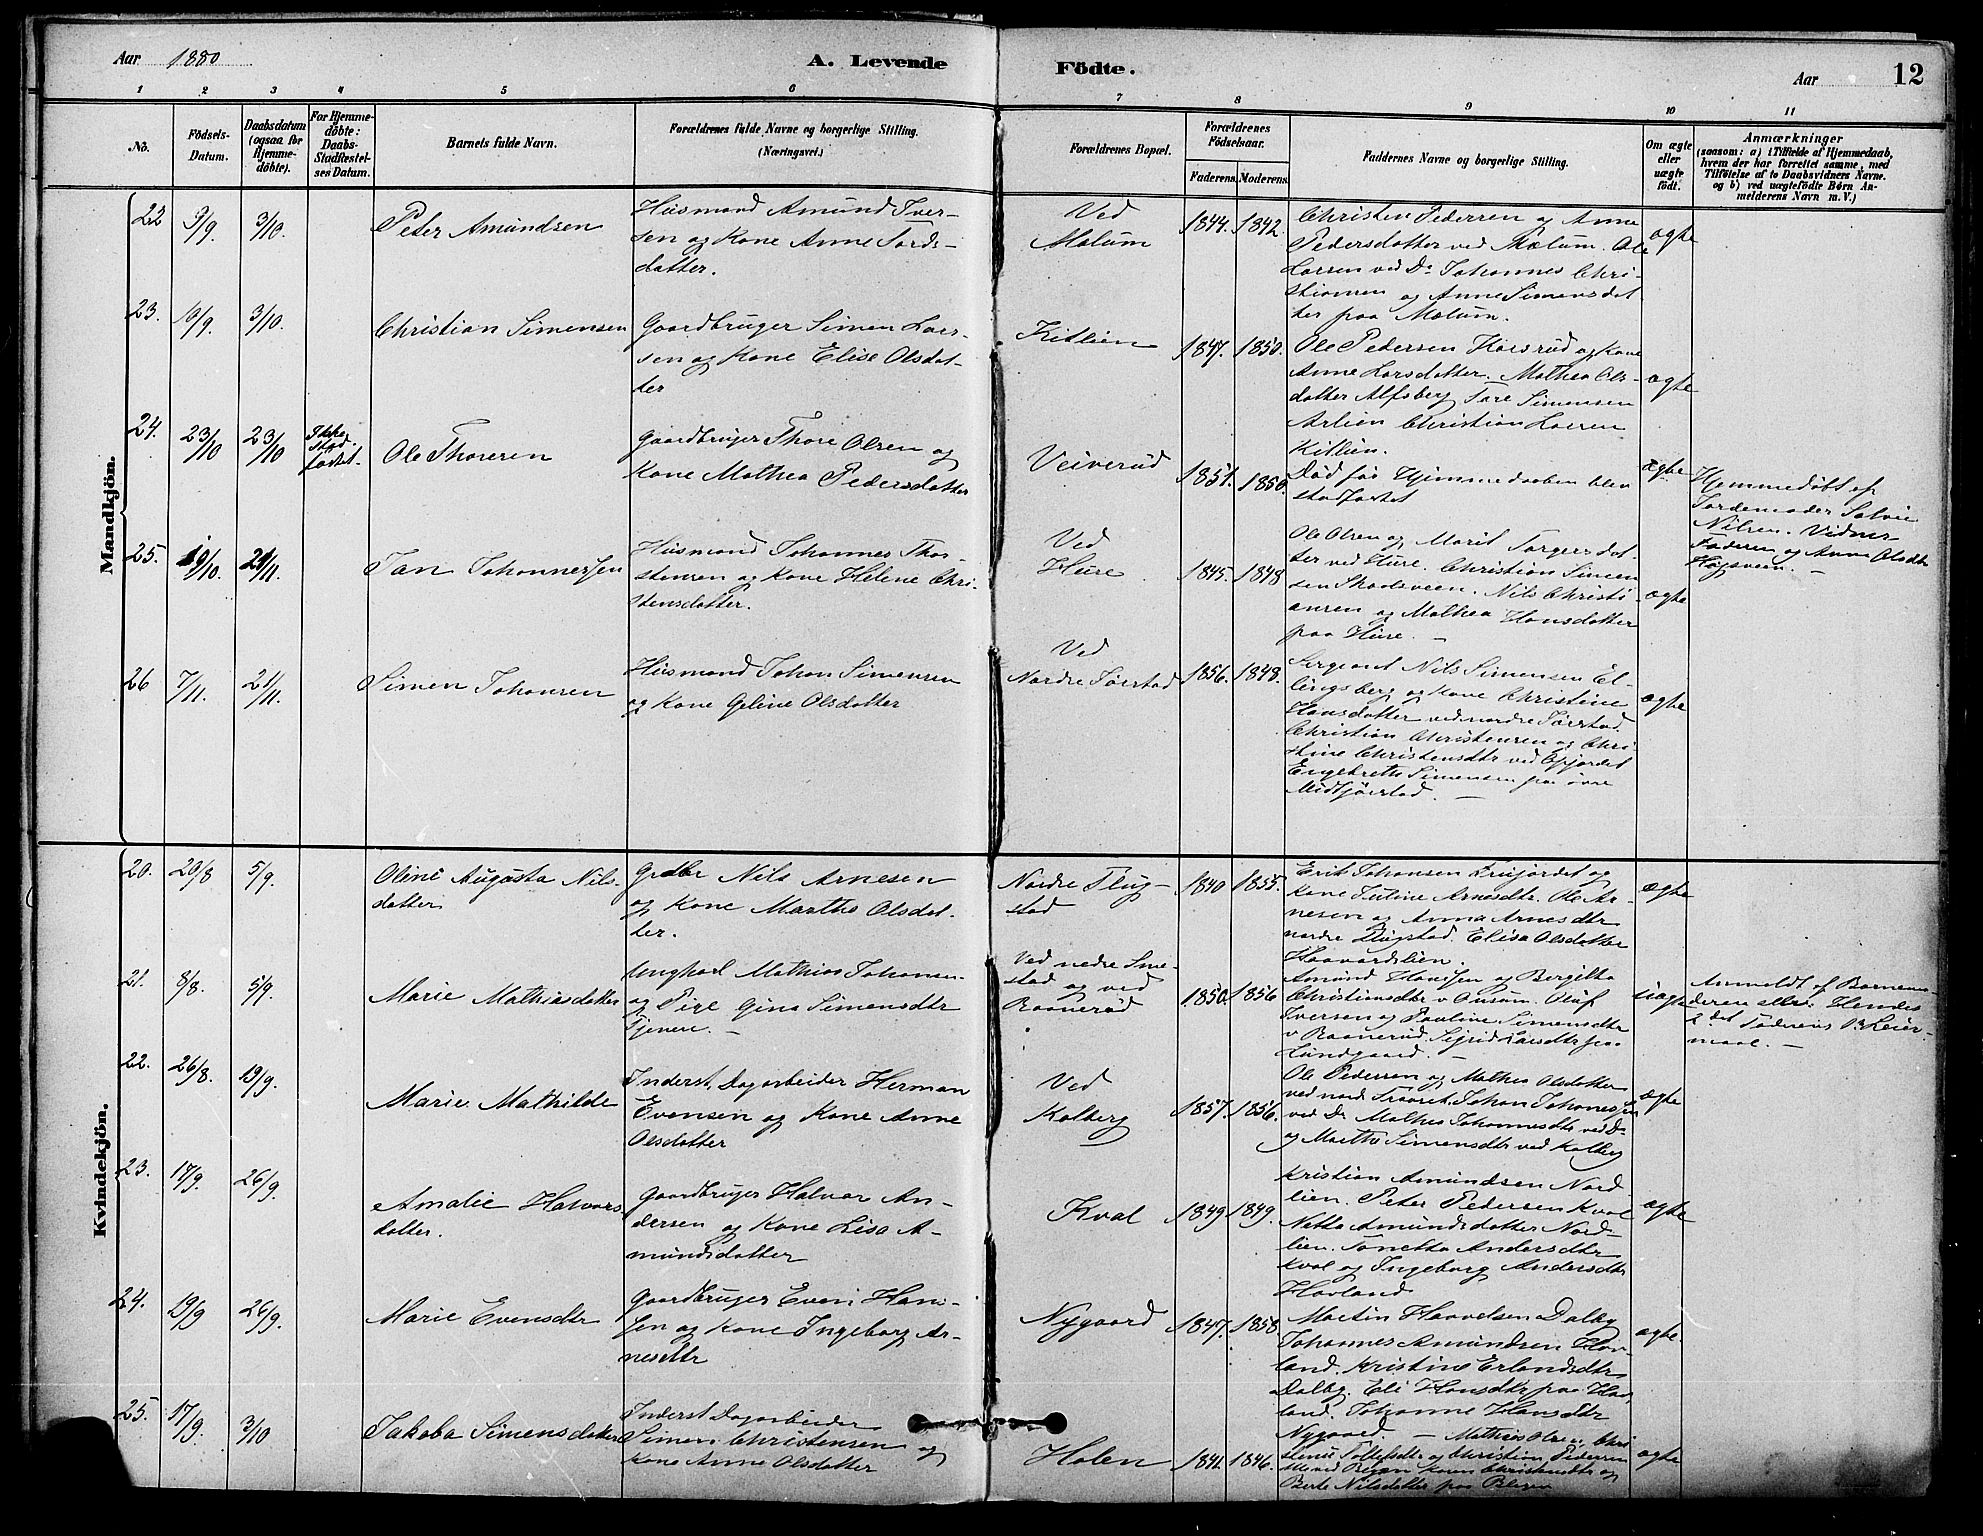 Aar 1880
A. Levende
Födte.
Aar
12
1 2 3 4 5 6 7 8 9 10 11
No.
Födsels-
Datum.
Daabsdatum
(ogsaa for
Hjemme-
döbte).
For Hjemme-
döbte:
Daabs-
Stadfæstel-
ses Datum.
Barnets fulde Navn.
Forældrenes fulde Navne og borgerlige Stilling.
(Næringsvei.)
Forældrenes Bopæl.
Forældrenes
Födselsaar.
Faderens.
Moderens.
Faddernes Navne og borgerlige Stilling.
Om ægte
eller
uægte
födt.
Anmærkninger
(saasom: a) i Tilfælde af Hjemmedaab,
hvem der har forrettet samme, med
Tilföielse af to Daabsvidners Navne.
og b) ved uægtefödte Börn An-
melderens Navn m. V.)
Mandkjön.
22
9/9
3/10.
Peter Amundsen
Husmand Amund Iver-
sen og Kone Anne
datter.
Ved
Mælum
1844. 1842.
Christen Pedersen og Anne
Pedersdatter ved Mælum. Ole
Larsen ved Do Johannes Chri-
stiansen og Anne Simensdat
ter paa Mælum.
ægte
23.
10/9.
3/10.
Christian Simensen
Gaardbruger Simen Lar-
sen og Kone Elise Olsdat-
ter
Kitlien
1847. 1850.
Ole Pedersen Horsrud og Kone
Anne Larsdatter. Mathea Ols-
datter Alfsberg Tore Simensen
Arlien Christian Larsen
Kitlien.
ægte
24.
23/10
23/10
Ikke
stad
fæstet.
Ole Thoresen
Gaardbruger Thore Olsen og
Kone Mathea Pedersdatter
Veiverud
1851. 1850.
Död för Hjemmedaaben blev
stadfæstet
ægte
Hjemmedöbt af
Jordemoder
Nilsen. Vidner
Faderen og Anne Olsdtr
25.
19/10.
21/11.
Jan Johannessen
Husmand Johannes Thor-
stensen og Kone Helene Chri-
stensdatter.
Ved
Hure
1845. 1848
Ole Olsen og Marit Torgersdat-
ter ved Hure. Christian Simen
sen Nils Christi-
ansen og Mathea Hansdatter
paa Hure. —
ægte
26
7/11.
21/11.
Simen Johansen
Husmand Johan Simensen
og Kone Geline Olsdatter
Ved
Nordre Jörstad
1856. 1848.
Sergeant Nils Simensen El-
lingsberg og Kone Christine
Hansdatter ved nordre Jörstad
Christian Christensen og Chri-
stine Christensdtr ved
Engebreth Simensen paa övre
Midtjörstad. —
ægte
Kvindekjön.
20.
20/8
5/9.
Oline Augusta Nils-
datter
Grdbr Nils Arnesen
og Kone Marthe Olsdat-
ter.
Nordre Flug-
stad
1840 1855.
Erik Johansen og
Kone Arnesdtr. Ole Ar-
nesen og Anna Arnesdtr
nordre Flugstad. Elisa Olsdatter
Haavardslien.
ægte
21.
8/8.
5/9.
Marie Mathiasdatter
Ungkarl Mathias Johansen
og Pige Gina Simensdtr
Tjenere. —
Ved nedre Sme-
stad og ved
Baanerud
1850. 1856
Amund Hanssen og
Christiansdtr v Oluf
Iversen og Pauline Simensdtr
v Baanerud. Sigrid Larsdtr paa
Lundgaard. —
uægte
Anmeldt af Barnemo-
deren Hendes
2det Faderens 1ste Leier-
maal. —
22.
26/8.
19/9.
Marie Mathilde
Inderst. Dagarbeider Herman
Evensen og Kone Anne
Olsdatter
Ved
Kolberg
1857. 1856.
Ole Pedersen og Mathea Olsdatter
ved Johan Johannessen
ved Do Mathea Johannesdtr ved Do
og Marthe Simensdtr ved Kolberg
ægte
23.
17/9.
26/9.
Amalie Halvors
datter.
Gaardbruger Halvor An-
dersen og Kone Lisa A-
mundsdatter
Kval
1849 1849.
Kristian Amundsen Nord-
lien. Peter Pedersen Kval
Netta Amundsdatter Nord-
lien. Tonetta Andersdtr
Kval og Ingeborg Andersdtr
Havland
ægte
24.
19/9
26/9.
Marie Evensdtr
Gaardbruger Even Han-
sen og Kone Ingeborg Ar-
nesdtr
Nygaard
1847. 1858.
Martin Haavelsen Dalby
Johannes Amundsen Hav-
land. Kristine Erlandsdtr
Dalby. Eli Hansdtr paa Hav
land. Johanne Hansdtr
Nygaard. —
ægte.
25.
17/9.
3/10
Jakoba Simensdatter
Inderst Dagarbeider
Simen Christensen og
Kone Anne Olsdatter
Holen
1841 1846.
Mathias Olsen
og Christian Pedersen
og
Berte Nilsdatter paa
ægte